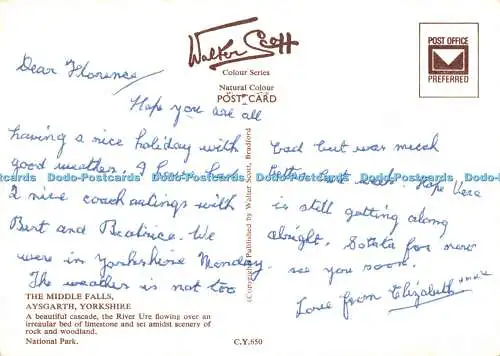 Walter Scott
Colour Series
Natural Colour
POSTCARD
POST OFFICE
PREFERRED
Dear Florence
Hope you are all
having a nice holiday with
good weather. I have had
2 nice coach outings with
Burt and Beatrice. We
were in Yorkshire Monday
The weather is not too
bad but was much
better last week. Hope Vera
is still getting along
alright. So ta ta for now
see you soon.
Love from Elizabeth
Dodo-Postcards Dodo-Postcards Dodo-Postcards Dodo-Postcards Dodo-Postcards Dodo-Postcards
(Copyright) Published by Walter Scott, Bradford
THE MIDDLE FALLS,
AYSGARTH, YORKSHIRE
A beautiful cascade, the River Ure flowing over an
irregular bed of limestone and set amidst scenery of
rock and woodland.
National Park.
C.Y.850